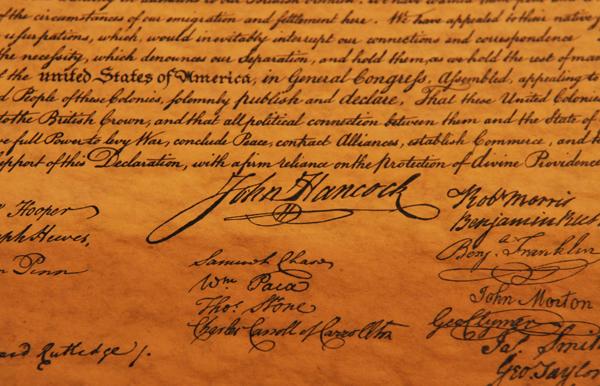 of the circumstances of our emigration and settlement here. We have appealed to their native
usurpations, which, would inevitably interrupt our connections and correspondence
the necessity, which denounces our Separation, and hold them, as we hold the rest of man
the united States of America, in General Congress, Assembled, appealing to
People of these Colonies, solemnly publish and declare, That these United Colonie
to the British Crown, and that all political connection between them and the State of
full Power to levy War, conclude Peace, contract Alliances, establish Commerce, and to
support of this Declaration, with a firm reliance on the protection of divine Providence
John Hancock
Hooper
Joseph Hewes,
Penn
Samuel Chase
Wm. Paca
Thos. Stone
Charles Carroll of Carrollton
Rutledge /.
Robt Morris
Benjamin Rus
Benja. Franklin
John Morton
Geo Clymer
Jas. Smith
Geo. Taylor